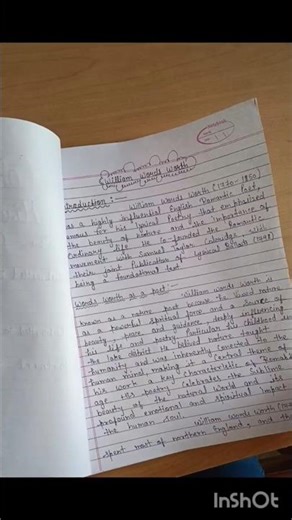 William Words Worth
Introduction :-
William Words Worth (1770-1850)
as a highly influential English Romantic Poet,
famous for his lyrical Poetry that emphasised
the beauty of nature and the importance of
ordinary life. He co-founded the Romantic
movement with Samuel Taylor Coleridge, with
their joint Publication of Lyrical Ballads
being a foundational text.
Words worth as a poet :-
William words worth is
known as a nature poet because he viewed nature
as a powerful spiritual force and a source of
beauty, peace and guidance, deeply influencing
his life and poetry, Particular his childhood in
the lake district. He believed nature taught
humanity and was inherently connected to the
human mind, making it a Central theme of
his work a key characteristic of Romantic
age. His poetry celebrates the sublime
beauty of the natural world and its
profound emotional and spiritual impact
the human soul.
William words worth
spent most of northern England, and the
InShOt